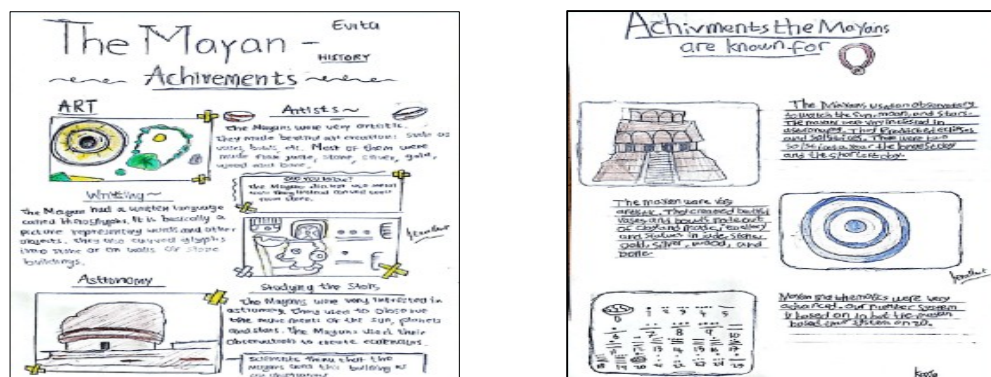 Evita
The Mayan -
HISTORY
Achirements
ART
Artists~
The Mayans were very artistic.
They made beutiful art creations such as
vases, bowls, etc. Most of them were
made from jade, stone, silver, gold,
wood and bone.
DID YOU KNOW?
The Mayans did not use metal
tools they instead carved tools
from stone.
Writting~
The Mayan had a written language
called Hiroglyphs. It is basically a
picture representing words and other
objects. They also curved glyphs
into stone or on walls of stone
buildings.
Astronomy
Studying the Stars
The Mayans were very interested in
astronomy. They used to observe
the movements of the sun, planets
and stars. The Mayans used their
Observation to create calendars.
Scientists think that the
mayans used this building as
an observatory
Achivments the Mayans
are known for
The Mayans used an observatory
to watch the Sun, moon, and stars.
The mayans were very interested in
astronomy. They predicted eclipses
and solstices. There were two
solstices a year the longest day
and the shortest day.
The mayan were very
artistic. They created
vases and bowls made out
of clay and made jewellery
and statues in jade, stone,
gold, silver, wood, and
bone.
Mayan mathematics were very
advanced. Our number system
is based on 10 but the mayan
based their system on 20.